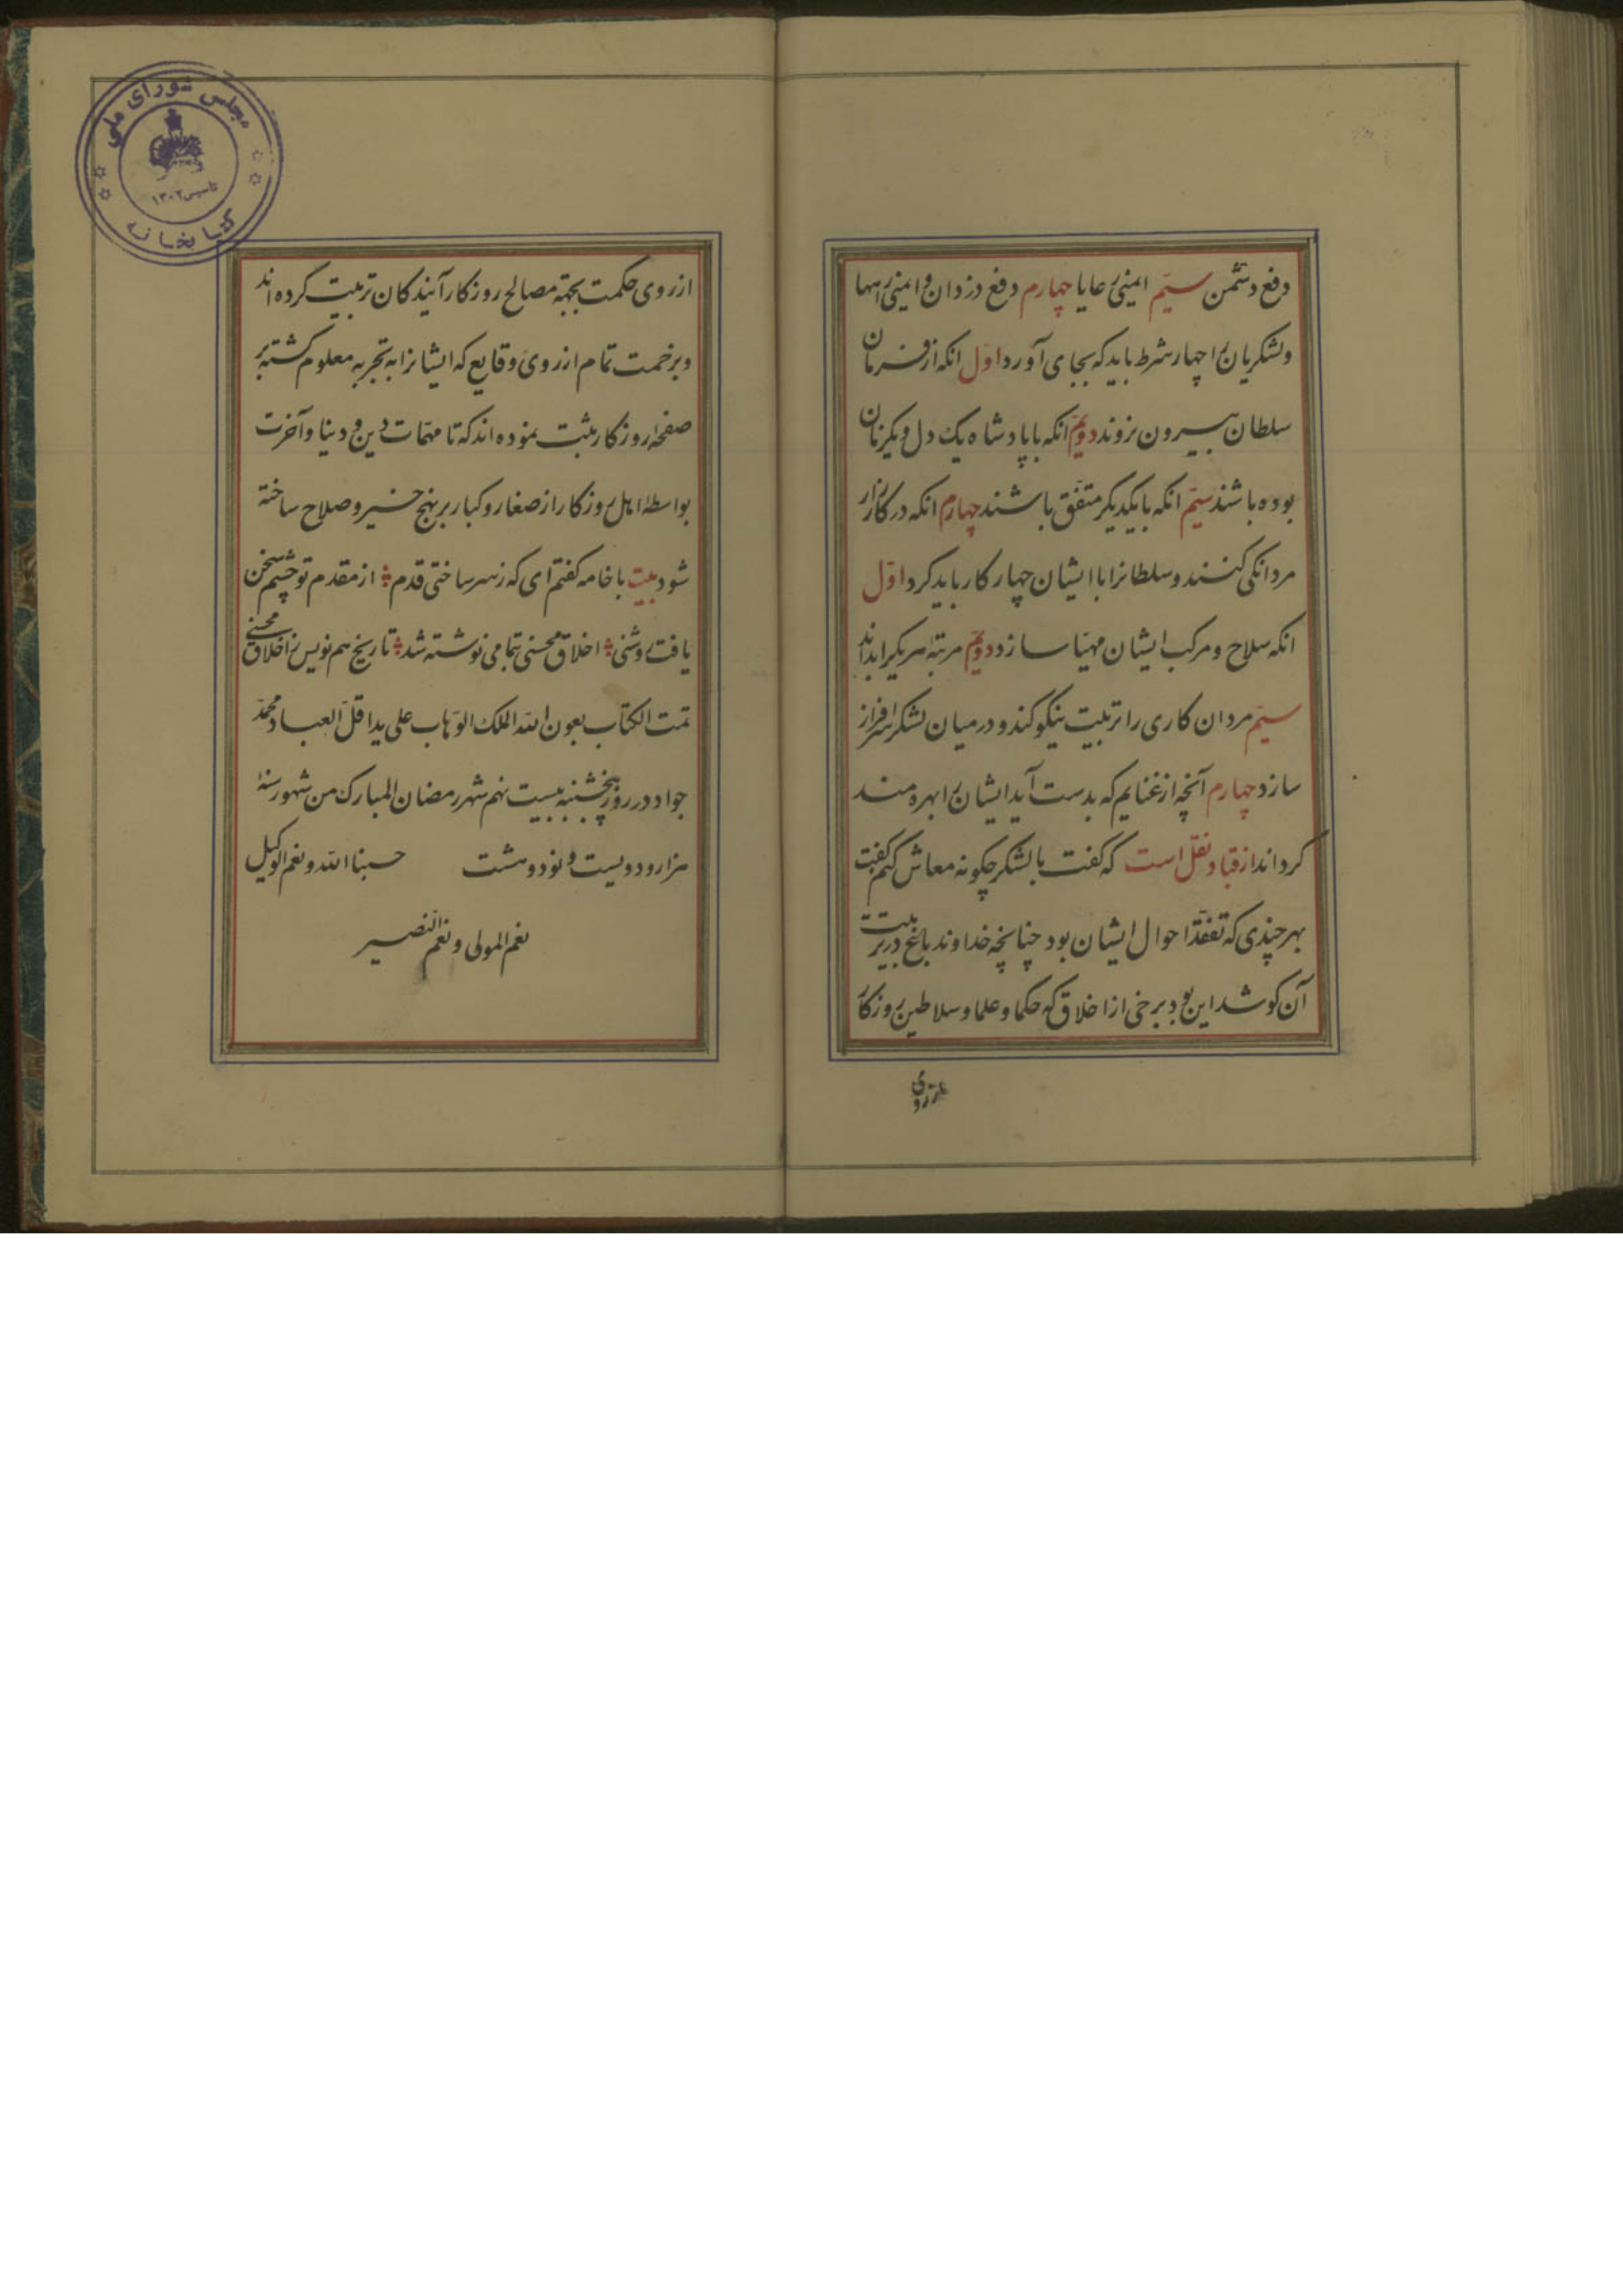 دفع دشمن سیّم ایمنی رعایا چهارم دفع دزدان و ایمنی راهها
ولشکریان را چهار شرط باید که بجای آورد اوّل انکه از فرمان
سلطان بیرون نروند دویّم انکه با پادشاه یک دل و یکزبان
بوده باشند سیّم انکه با یکدیگر متّفق باشند چهارم انکه در کارزار
مردانکی کنند وسلطانرا با ایشان چهار کار باید کرد اوّل
انکه سلاح و مرکب ایشان مهیّا سازد دویّم مرتبهٔ هر یک را بداند
سیّم مردان کاری را تربیت نیکو کند و در میان لشکر سرافراز
سازد چهارم آنچه از غنایم که بدست آید ایشان را بهره مند
کرداند از قباد نقل است که کفت با لشکر چکونه معاش کنم کفت
بهر چندی که تفقّد احوال ایشان بود چنانچه خداوند باغ در تربیت
آن کوشد این بود برخی از اخلاق که حکما و علما و سلاطین روزکار
از روی
از روی حکمت بجهة مصالح روزکار آیندکان تربیت کرده اند
و برخمت تمام از روی وقایع که ایشانرا به تجربه معلوم کشته بر
صفحهٔ روزکار ثبت نموده اند که تا مهمّات دین و دنیا و آخرت
بواسطهٔ اهل روزکار از صغار و کبار بر نهج خیر و صلاح ساخته
شود بیت با خامه کفتم ای که ز سر ساختی قدم از مقدم تو چشم سخن
یافت روشنی اخلاق محسنی بتمامی نوشته شد تاریخ هم نویس ز اخلاق محسنی
تمت الکتاب بعون الله الملک الوهّاب علی ید اقلّ العباد محمّد
جواد در روز پنجشنبه بیست نهم شهر رمضان المبارک من شهور سنهٔ
هزار و دویست و نود و هشت حسبنا الله و نعم الوکیل
نعم المولی و نعم النّصیر
مجلس شورای ملی
تاسیس ۱۳۰۲
کتابخانه